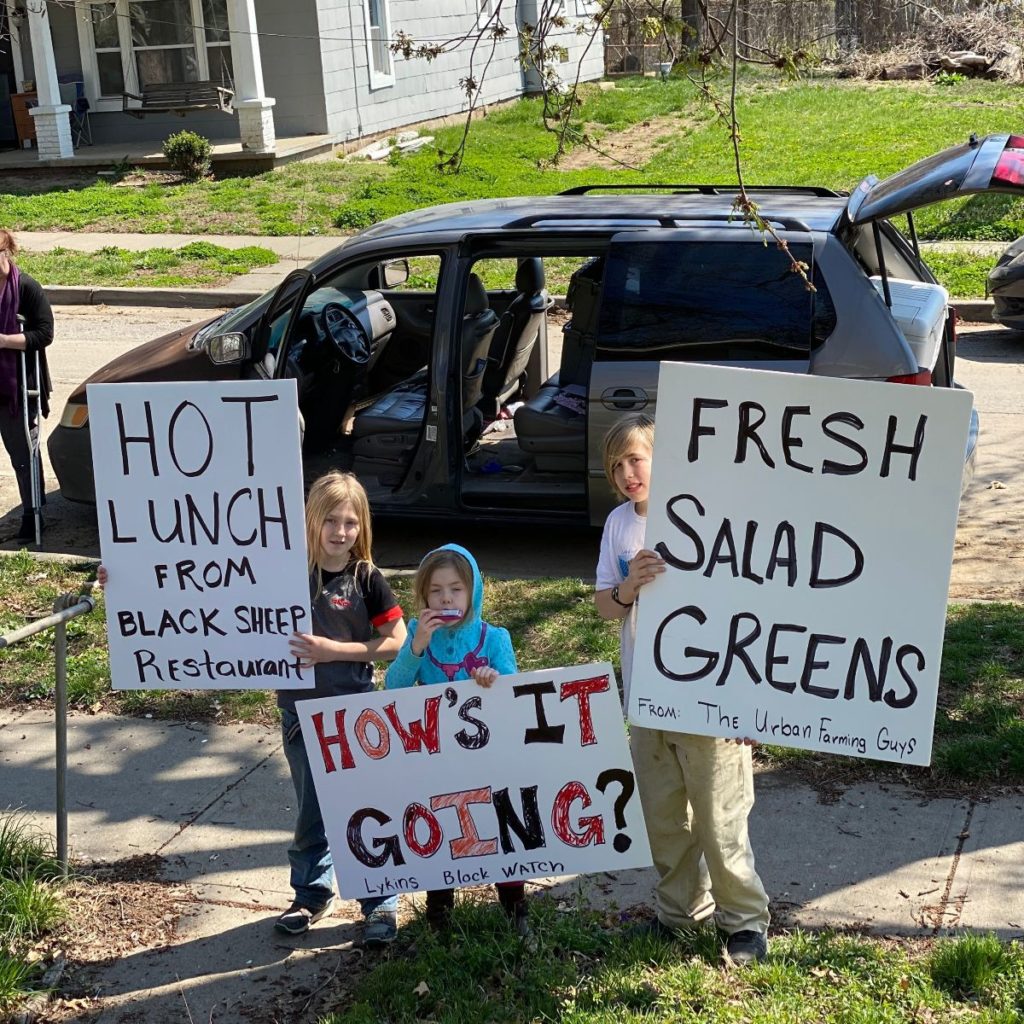 HOT
LUNCH
FROM
BLACK SHEEP
Restaurant
HOW'S IT
GOING?
Lykins Block WATCH
FRESH
SALAD
GREENS
FROM: The Urban Farming Guys